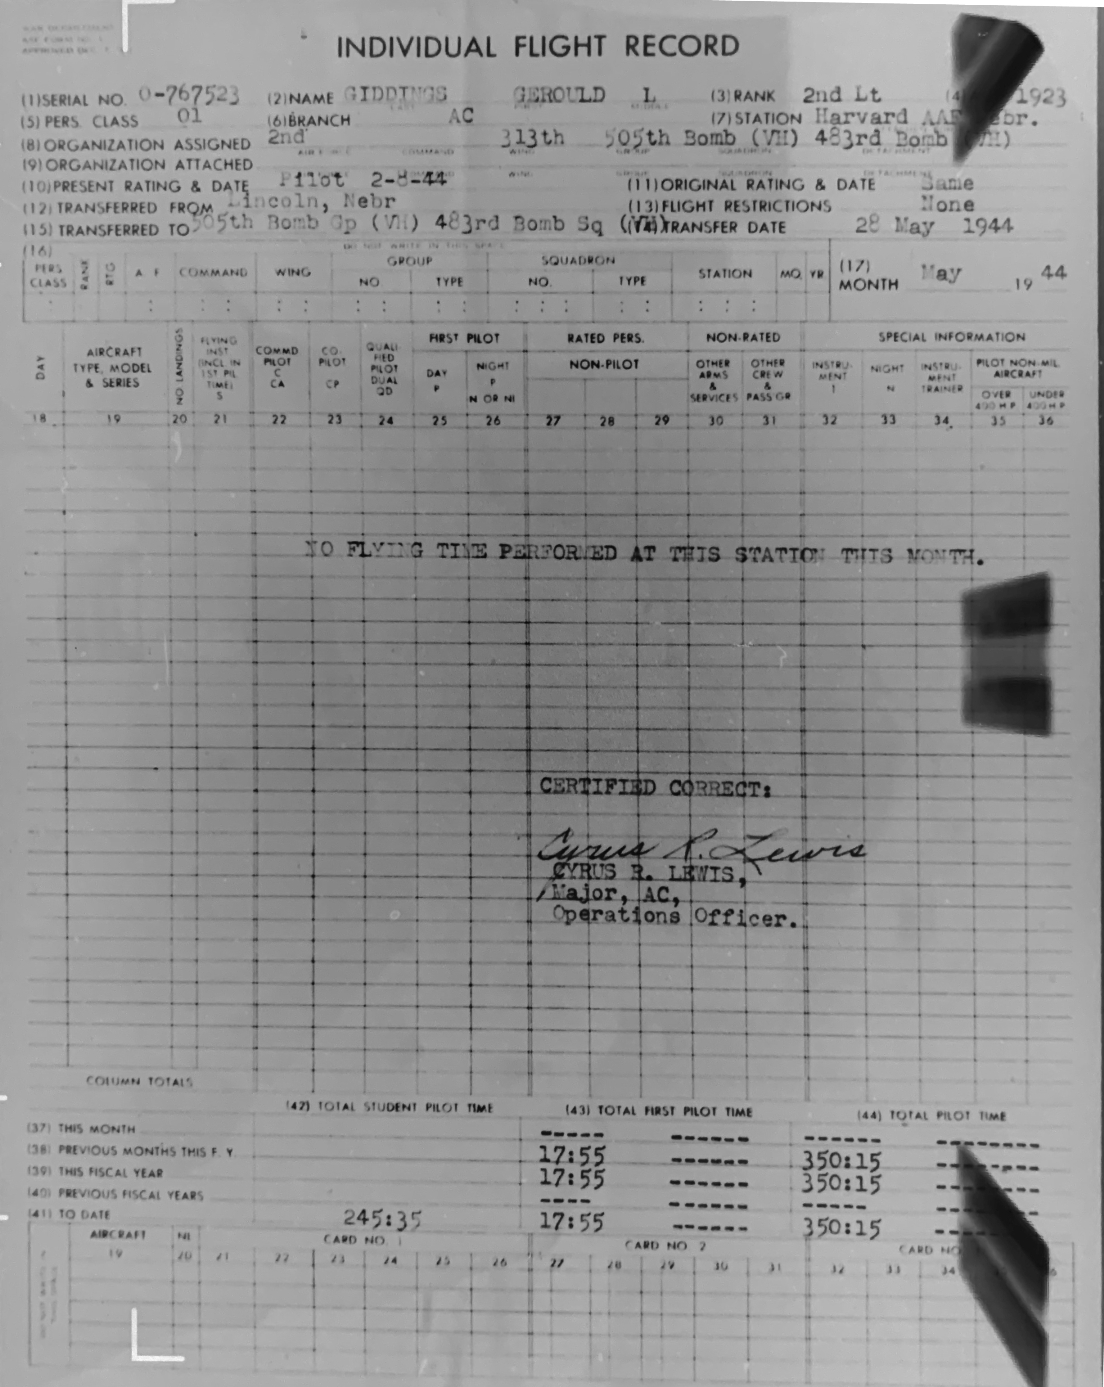 WAR DEPARTMENT
INDIVIDUAL FLIGHT RECORD
(1) SERIAL NO. O-767523 (2) NAME GIDDINGS GEROULD L (3) RANK 2nd Lt (4) 1923
(5) PERS. CLASS 01 (6) BRANCH AC (7) STATION Harvard AAF Nebr.
(8) ORGANIZATION ASSIGNED 2nd 313th 505th Bomb (VH) 483rd Bomb (VH)
(9) ORGANIZATION ATTACHED
(10) PRESENT RATING & DATE Pilot 2-8-44 (11) ORIGINAL RATING & DATE Same
(12) TRANSFERRED FROM Lincoln, Nebr (13) FLIGHT RESTRICTIONS None
(15) TRANSFERRED TO 505th Bomb Gp (VH) 483rd Bomb Sq (VH) TRANSFER DATE 28 May 1944
(16) DO NOT WRITE IN THIS SPACE
PERS CLASS RANK RTG A F COMMAND WING GROUP NO. TYPE SQUADRON NO. TYPE STATION MO. YR. (17) MONTH May 19 44
DAY AIRCRAFT TYPE, MODEL & SERIES NO. LANDINGS FLYING INST (INCL IN 1ST PIL TIME) S COMMD PILOT C CA CO-PILOT CP QUALIFIED PILOT DUAL QD FIRST PILOT DAY P NIGHT P N OR NI RATED PERS. NON-PILOT NON-RATED OTHER ARMS & SERVICES OTHER CREW & PASS'GR SPECIAL INFORMATION INSTRUMENT I NIGHT N INSTRUMENT TRAINER PILOT NON-MIL AIRCRAFT OVER 400 H P UNDER 400 H P
18 19 20 21 22 23 24 25 26 27 28 29 30 31 32 33 34 35 36
NO FLYING TIME PERFORMED AT THIS STATION THIS MONTH.
CERTIFIED CORRECT:
Cyrus R. Lewis
CYRUS R. LEWIS,
Major, AC,
Operations Officer.
COLUMN TOTALS
(42) TOTAL STUDENT PILOT TIME (43) TOTAL FIRST PILOT TIME (44) TOTAL PILOT TIME
(37) THIS MONTH ----- ------ ------ --------
(38) PREVIOUS MONTHS THIS F. Y. 17:55 ------ 350:15 --------
(39) THIS FISCAL YEAR 17:55 ------ 350:15 --------
(40) PREVIOUS FISCAL YEARS ---- ------ ------ --------
(41) TO DATE 245:35 17:55 ------ 350:15 --------
AIRCRAFT NL CARD NO. 1 CARD NO. 2 CARD NO.
19 20 21 22 23 24 25 26 27 28 29 30 31 32 33 34 6